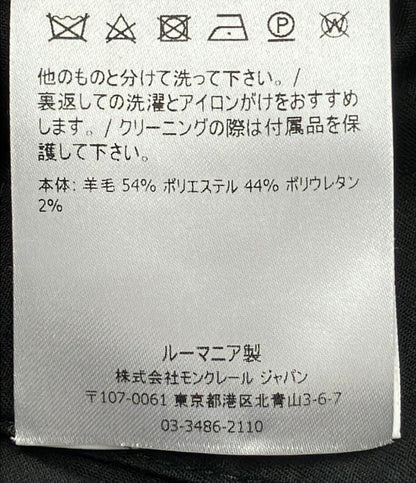 P W
他のものと分けて洗って下さい。/
裏返しての洗濯とアイロンがけをおすすめ
します。/ クリーニングの際は付属品を保
護して下さい。
本体: 羊毛 54% ポリエステル 44% ポリウレタン
2%
ルーマニア製
株式会社モンクレール ジャパン
〒107-0061 東京都港区北青山3-6-7
03-3486-2110